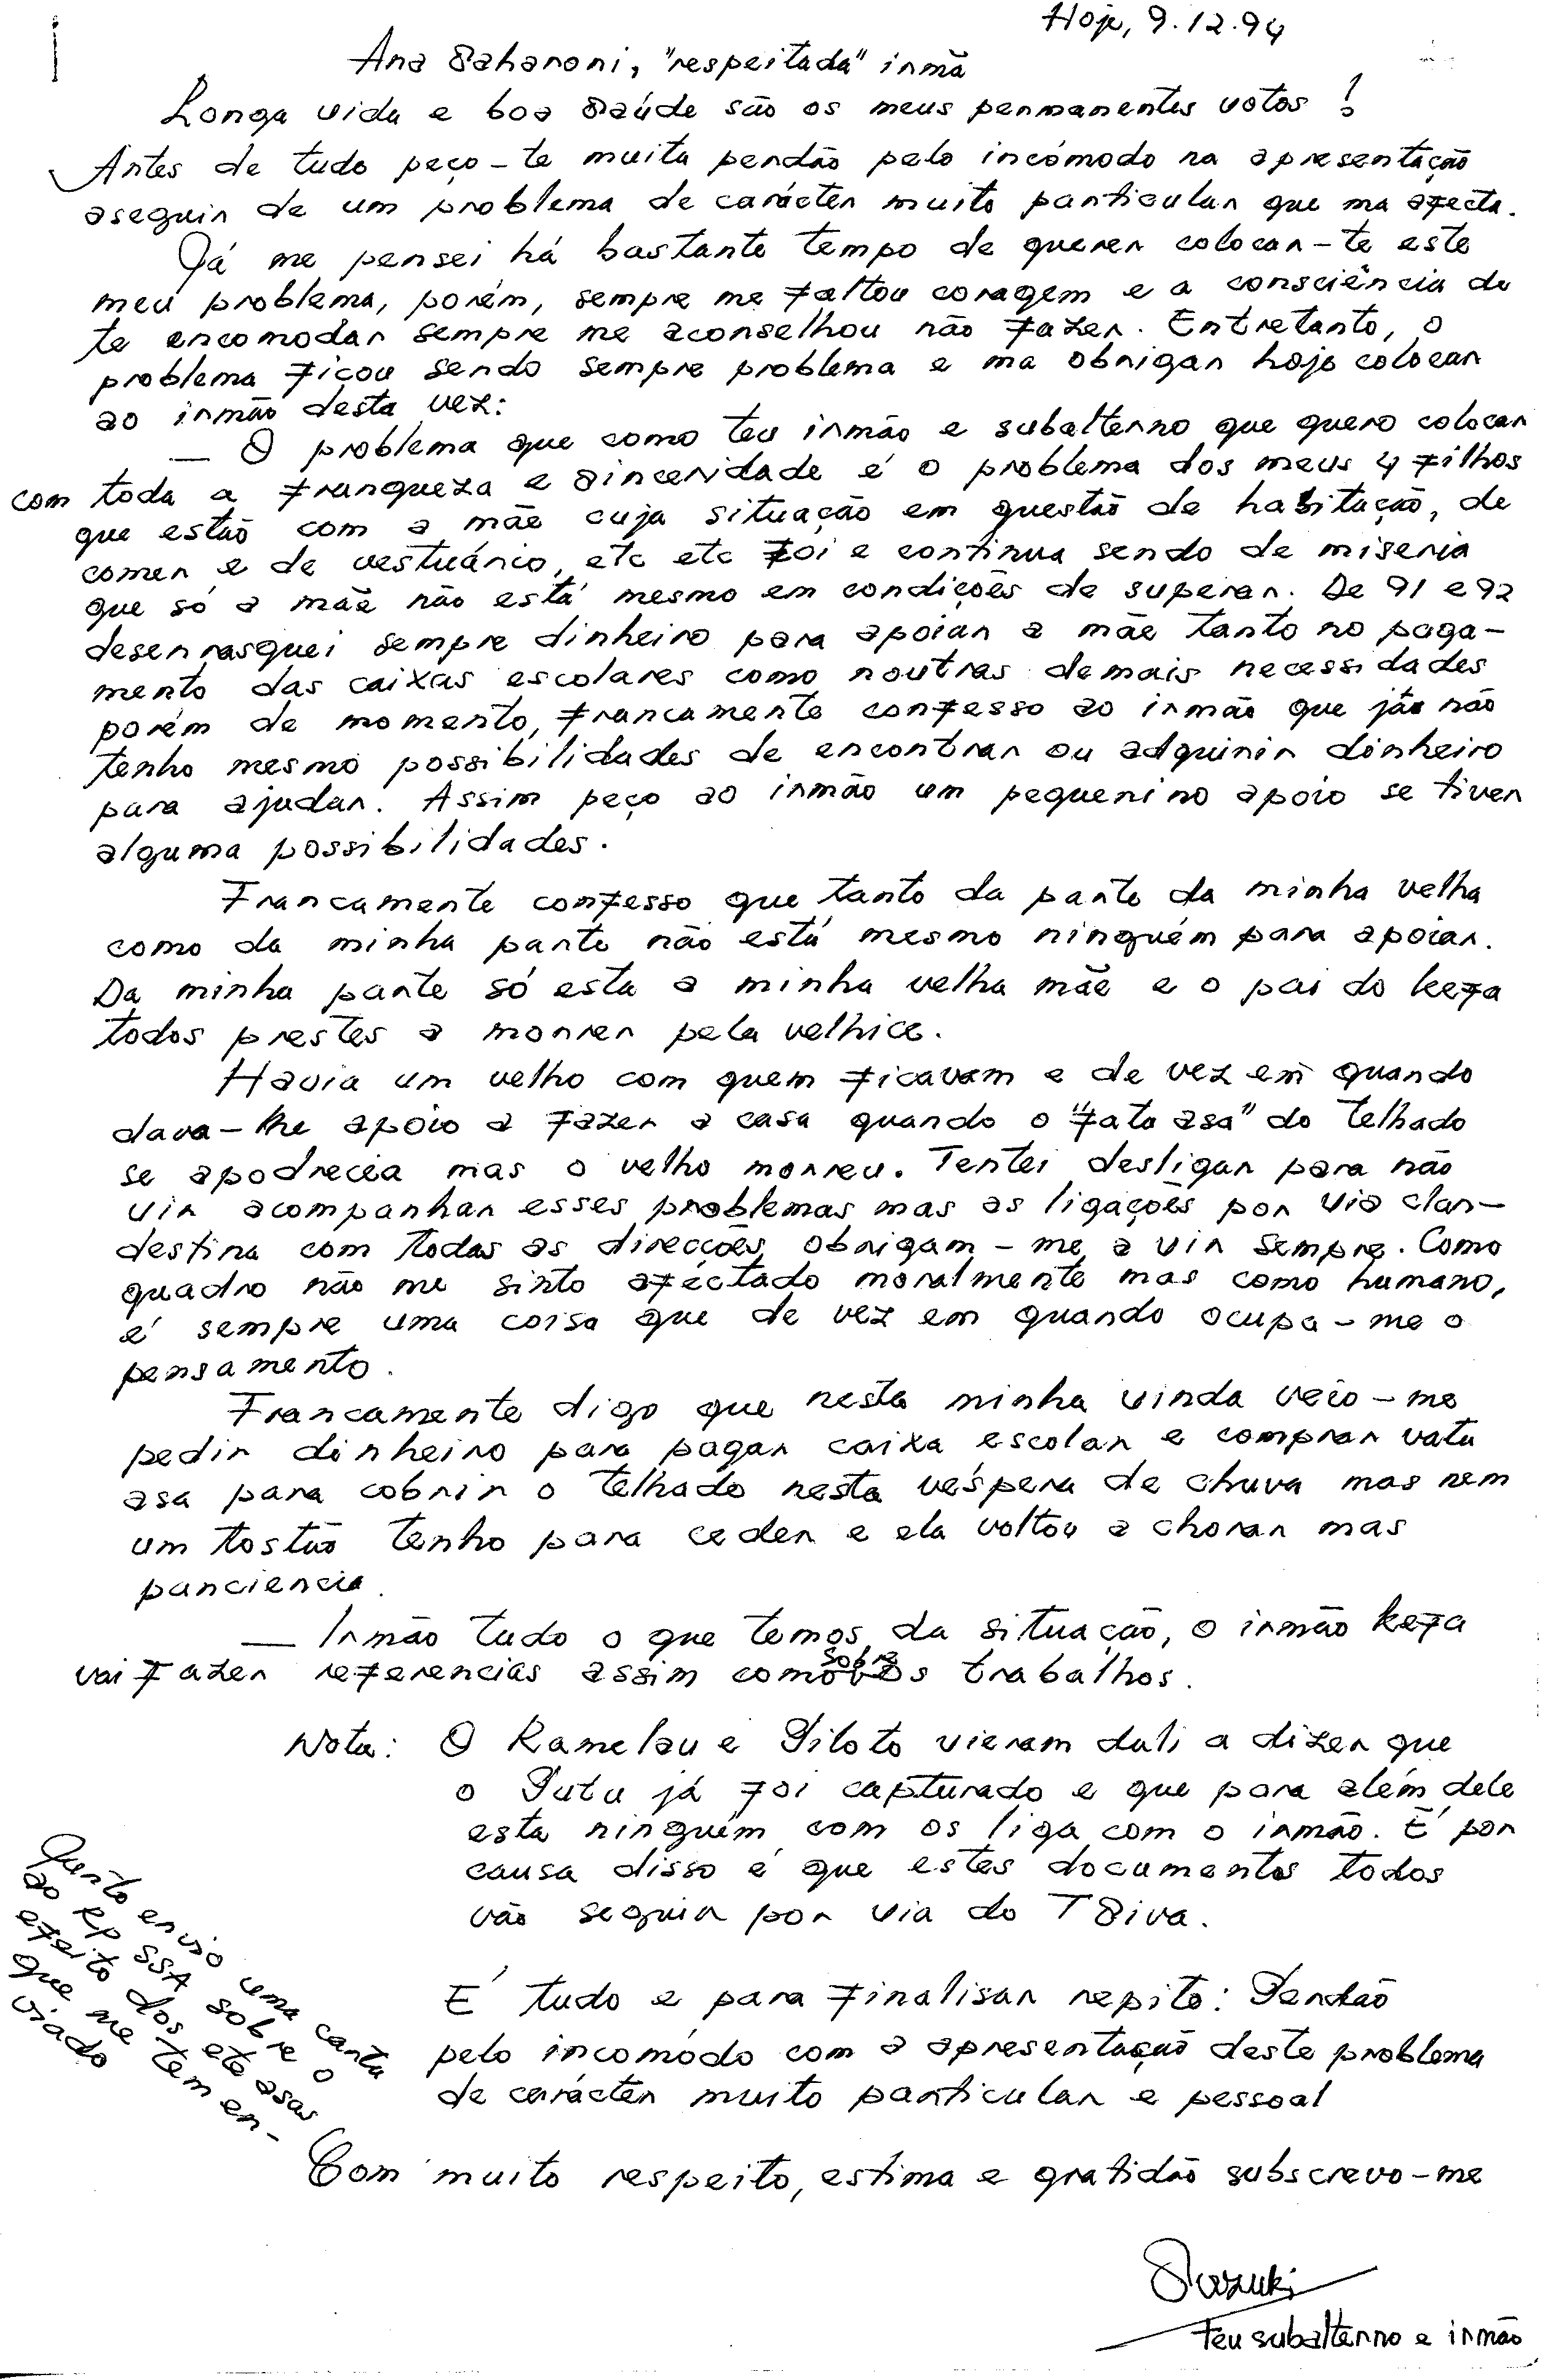 Hoje, 9.12.94
Ana Sahanoni, "respeitada" irmã
Longa vida e boa Saúde são os meus permanentes votos!
Antes de tudo peço-te muita perdão pelo incómodo na apresentação
aseguir de um problema de carácter muito particular que ma afecta.
Já me pensei há bastante tempo de querer colocar-te este
meu problema, porém, sempre me faltou coragem e a consciência de
te encomodar sempre me aconselhou não fazer. Entretanto, o
problema ficou sendo sempre problema e ma obrigar hoje colocar
ao irmão desta vez:
— O problema que como teu irmão e subalterno que quero colocar
com toda a franqueza e Sinceridade é o problema dos meus 4 filhos
que estão com a mãe cuja situação em questão de habitação, de
comer e de vestuário, etc etc foi e continua sendo de miseria
que só a mãe não está mesmo em condições de superar. De 91 e 92
desenrasquei sempre dinheiro para apoiar a mãe tanto no paga-
mento das caixas escolares como noutras demais necessidades
porém de momento, francamente confesso ao irmão que já não
tenho mesmo possibilidades de encontrar ou adquirir dinheiro
para ajudar. Assim peço ao irmão um pequenino apoio se tiver
alguma possibilidades.
Francamente confesso que tanto da parte da minha velha
como da minha parte não está mesmo ninguém para apoiar.
Da minha parte só esta a minha velha mãe e o pai do kefa
todos prestes a morrer pela velhice.
Havia um velho com quem ficavam e de vez em quando
dava-lhe apoio a fazer a casa quando o "fata asa" do telhado
se apodrecia mas o velho morreu. Tentei desligar para não
vir acompanhar esses problemas mas as ligações por via clan-
destina com todas as direcções, obrigam-me a vir sempre. Como
quadro não me sinto aféctado moralmente mas como humano,
é sempre uma coisa que de vez em quando ocupa-me o
pensamento.
Francamente digo que nesta minha vinda veio-me
pedir dinheiro para pagar caixa escolar e comprar vata
asa para cobrir o telhado nesta véspera de chuva mas nem
um tostão tenho para ceder e ela voltou a chorar mas
panciencia.
— Irmão tudo o que temos da situação, o irmão kefa
vai fazer referencias assim como sobre os trabalhos.
Nota: O Ramelau e Piloto vieram dali a dizer que
o Putu já foi capturado e que para além dele
esta ninguém com os liga com o irmão. É por
causa disso é que estes documentos todos
vão seguir por via do T Siva.
Junto envio uma carta
ao RP SSA sobre o
efeito dos ete asas
que me tem en-
viado
É tudo e para finalisar repito: Perdão
pelo incomódo com a apresentação deste problema
de carácter muito particular e pessoal
Com muito respeito, estima e gratidão subscrevo-me
Suzuki
Teu subalterno e irmão